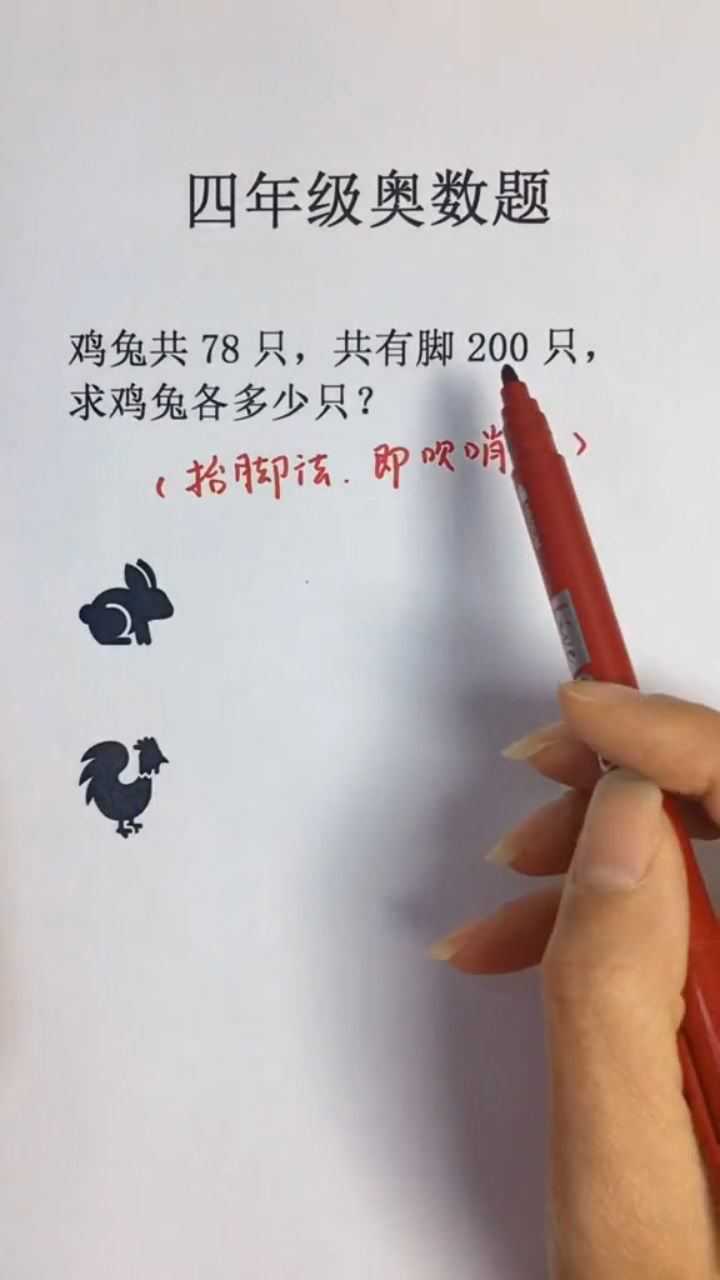 四年级奥数题
鸡兔共 78 只，共有脚 200 只，
求鸡兔各多少只？
（抬脚法．即吹哨）